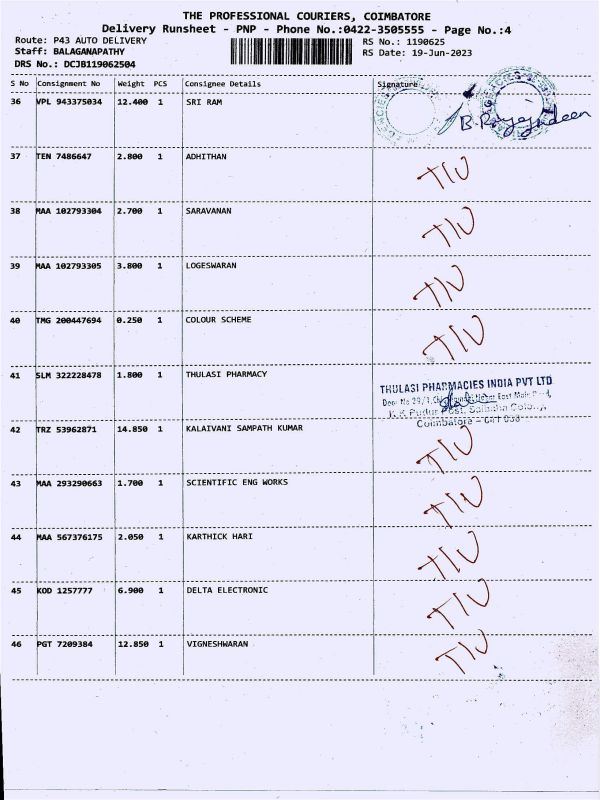 THE PROFESSIONAL COURIERS, COIMBATORE
Delivery Runsheet - PNP - Phone No.:0422-3505555 - Page No.:4
Route: P43 AUTO DELIVERY RS No.: 1190625
Staff: BALAGANAPATHY RS Date: 19-Jun-2023
DRS No.: DCJB119062504
S No Consignment No Weight PCS Consignee Details Signature
36 VPL 943375034 12.400 1 SRI RAM
37 TEN 7486647 2.800 1 ADHITHAN T/U
38 MAA 102793304 2.700 1 SARAVANAN T/U
39 MAA 102793305 3.800 1 LOGESWARAN T/U
40 TMG 200447694 0.250 1 COLOUR SCHEME T/U
41 SLM 322228478 1.800 1 THULASI PHARMACY
THULASI PHARMACIES INDIA PVT LTD
K.K Pudur Post, Saibaba Colony,
Coimbatore - 641 038
42 TRZ 53962871 14.850 1 KALAIVANI SAMPATH KUMAR T/U
43 MAA 293290663 1.700 1 SCIENTIFIC ENG WORKS T/U
44 MAA 567376175 2.050 1 KARTHICK HARI T/U
45 KOD 1257777 6.900 1 DELTA ELECTRONIC T/U
46 PGT 7209384 12.850 1 VIGNESHWARAN T/U